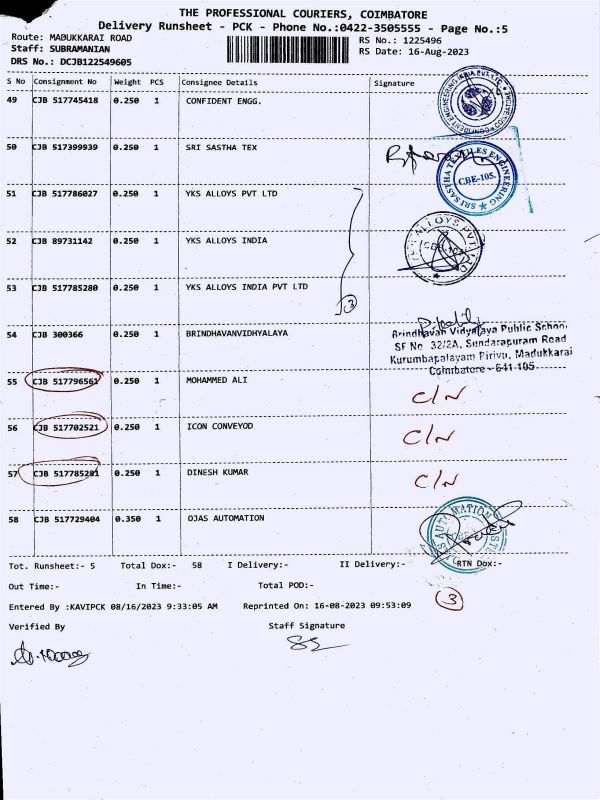 THE PROFESSIONAL COURIERS, COIMBATORE
Delivery Runsheet - PCK - Phone No.:0422-3505555 - Page No.:5
Route: MADUKKARAI ROAD
RS No.: 1225496
Staff: SUBRAMANIAN
RS Date: 16-Aug-2023
DRS No.: DCJB122549605
S No Consignment No Weight PCS Consignee Details Signature
49 CJB 517745418 0.250 1 CONFIDENT ENGG.
50 CJB 517399939 0.250 1 SRI SASTHA TEX
SRI SASTHA TEXTILES ENGINEERING
CBE-105.
51 CJB 517786027 0.250 1 YKS ALLOYS PVT LTD
52 CJB 89731142 0.250 1 YKS ALLOYS INDIA
ALLOYS PVT LTD
53 CJB 517785280 0.250 1 YKS ALLOYS INDIA PVT LTD
3
54 CJB 300366 1 0.250 BRINDHAVANVIDHYALAYA
Brindhavan Vidyalaya Public School
SF No 32/2A, Sundarapuram Road
Kurumbapalayam Pirivu, Madukkarai
Coimbatore - 641 105
55 CJB 517796561 0.250 1 MOHAMMED ALI C/N
56 CJB 517702521 0.250 1 ICON CONVEYOD C/N
57 CJB 517785281 0.250 1 DINESH KUMAR C/N
58 CJB 517729404 0.350 1 OJAS AUTOMATION
AUTOMATION
Tot. Runsheet:- 5 Total Dox:- 58 I Delivery:- II Delivery:- RTN Dox:-
Out Time:- In Time:- Total POD:-
3
Entered By :KAVIPCK 08/16/2023 9:33:05 AM Reprinted On: 16-08-2023 09:53:09
Verified By Staff Signature